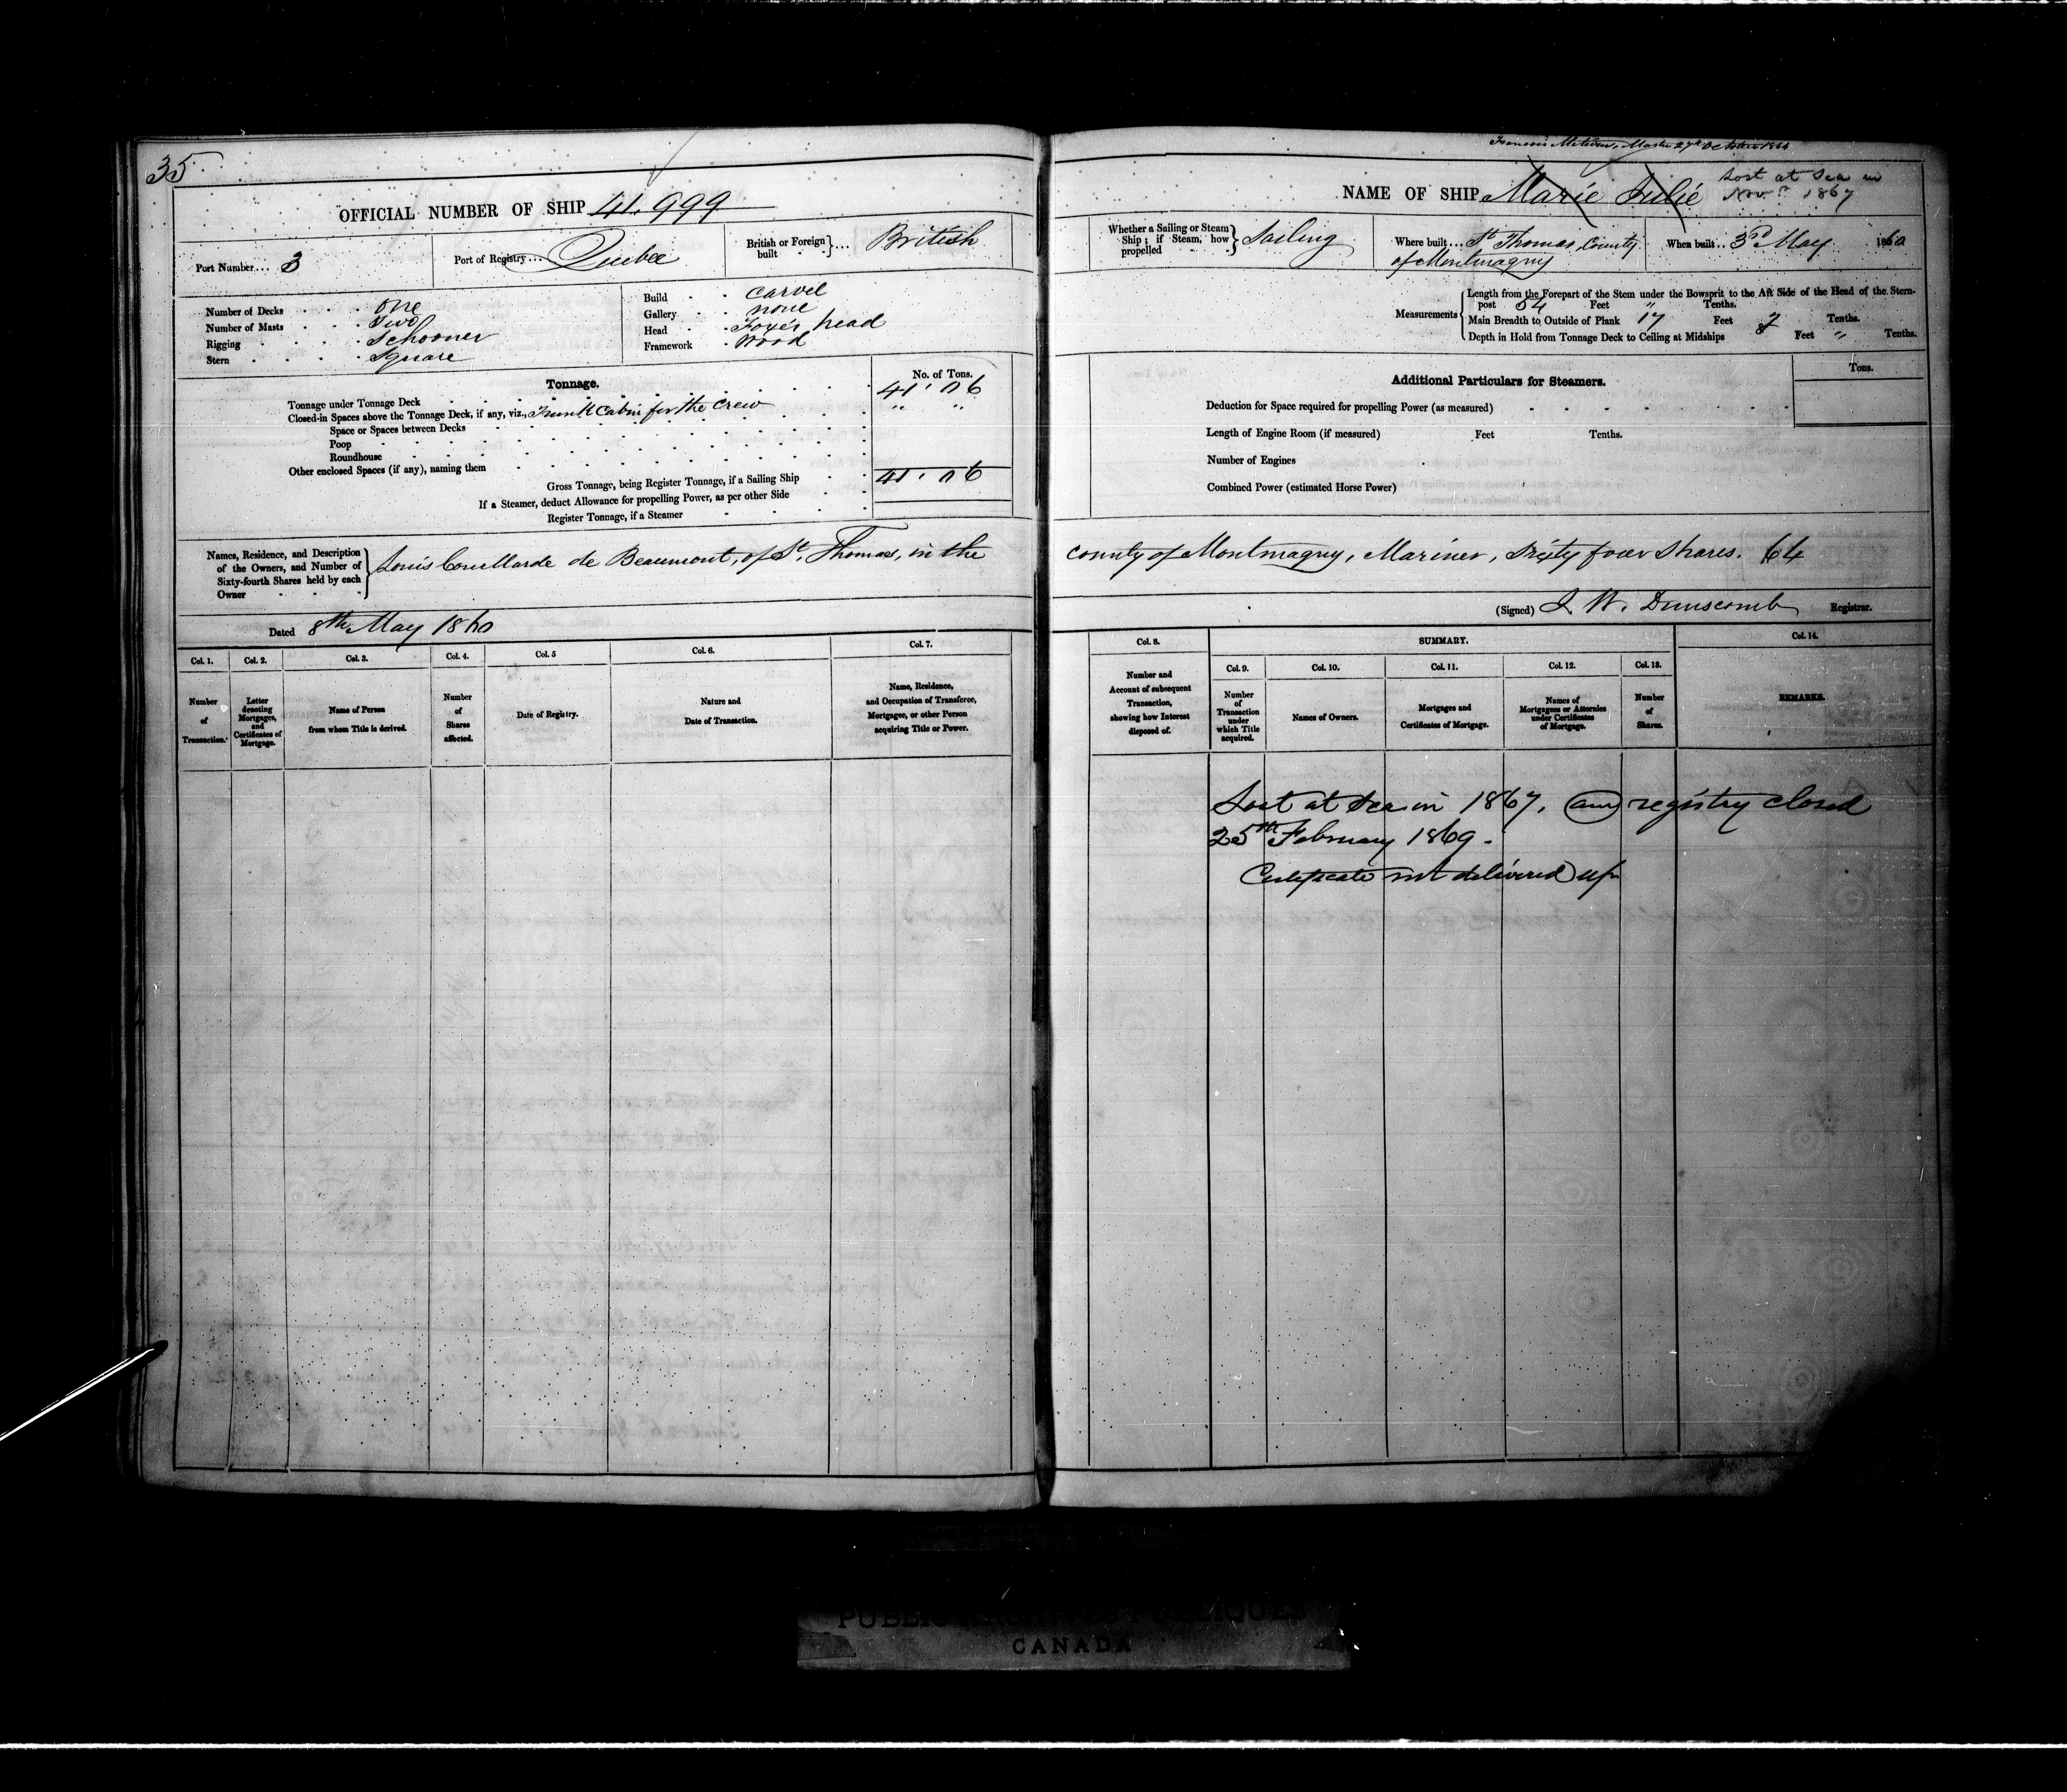 35
OFFICIAL NUMBER OF SHIP 41.999
Port Number... 3
Port of Registry... Quebec
British or Foreign built ... British
Number of Decks one
Number of Masts Two
Rigging Schooner
Stern Square
Build Carvel
Gallery none
Head Foxes head
Framework Wood
Tonnage.
No. of Tons.
Tonnage under Tonnage Deck 41.06
Closed-in Spaces above the Tonnage Deck, if any, viz., Trunk Cabin for the Crew " "
Space or Spaces between Decks
Poop
Roundhouse
Other enclosed Spaces (if any), naming them
Gross Tonnage, being Register Tonnage, if a Sailing Ship 41.06
If a Steamer, deduct Allowance for propelling Power, as per other Side
Register Tonnage, if a Steamer
Master 27th October 1864
NAME OF SHIP Marie Julie
Lost at Sea in
Novr 1867
Whether a Sailing or Steam Ship; if Steam, how propelled Sailing
Where built... St Thomas, County
of Montmagny
When built... 3rd May 1860
Measurements
Length from the Forepart of the Stem under the Bowsprit to the Aft Side of the Head of the Stern-
post 54 Feet " Tenths.
Main Breadth to Outside of Plank 17 Feet 7 Tenths.
Depth in Hold from Tonnage Deck to Ceiling at Midships 8 Feet " Tenths.
Additional Particulars for Steamers.
Tons.
Deduction for Space required for propelling Power (as measured)
Length of Engine Room (if measured) Feet Tenths.
Number of Engines
Combined Power (estimated Horse Power)
Names, Residence, and Description
of the Owners, and Number of
Sixty-fourth Shares held by each
Owner
Louis Couillarde de Beaumont, of St. Thomas, in the county of Montmagny, Mariner, Sixty four Shares. 64
Dated 8th May 1860
(Signed) J. W. Dunscomb Registrar.
Col. 1. Number of Transaction.
Col. 2. Letter denoting Mortgages, and Certificates of Mortgage.
Col. 3. Name of Person from whom Title is derived.
Col. 4. Number of Shares affected.
Col. 5 Date of Registry.
Col. 6. Nature and Date of Transaction.
Col. 7. Name, Residence, and Occupation of Transferee, Mortgagee, or other Person acquiring Title or Power.
Col. 8. Number and Account of subsequent Transaction, showing how Interest disposed of.
SUMMARY.
Col. 9. Number of Transaction under which Title acquired.
Col. 10. Names of Owners.
Col. 11. Mortgages and Certificates of Mortgage.
Col. 12. Names of Mortgagees or Attornies under Certificates of Mortgage.
Col. 13. Number of Shares.
Col. 14. REMARKS.
Lost at Sea in 1867, and registry closed
25th February 1869.
Certificate not delivered up
CANADA